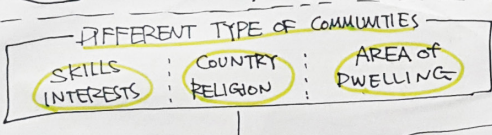 DIFFERENT TYPE OF COMMUNITIES
SKILLS
INTERESTS
COUNTRY
RELIGION
AREA OF
DWELLING